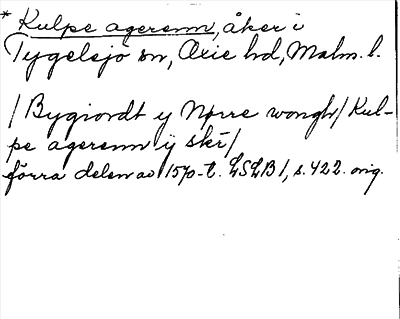 * Kulpe agerenn, åker i
Tygelsjö sn, Oxie hd, Malm. l.
/Bygiordt y Nørre wongh/ Kul-
pe agerenn ÿ skr̄/
förra delen av 1570-t. LSLB 1, s. 422. orig.